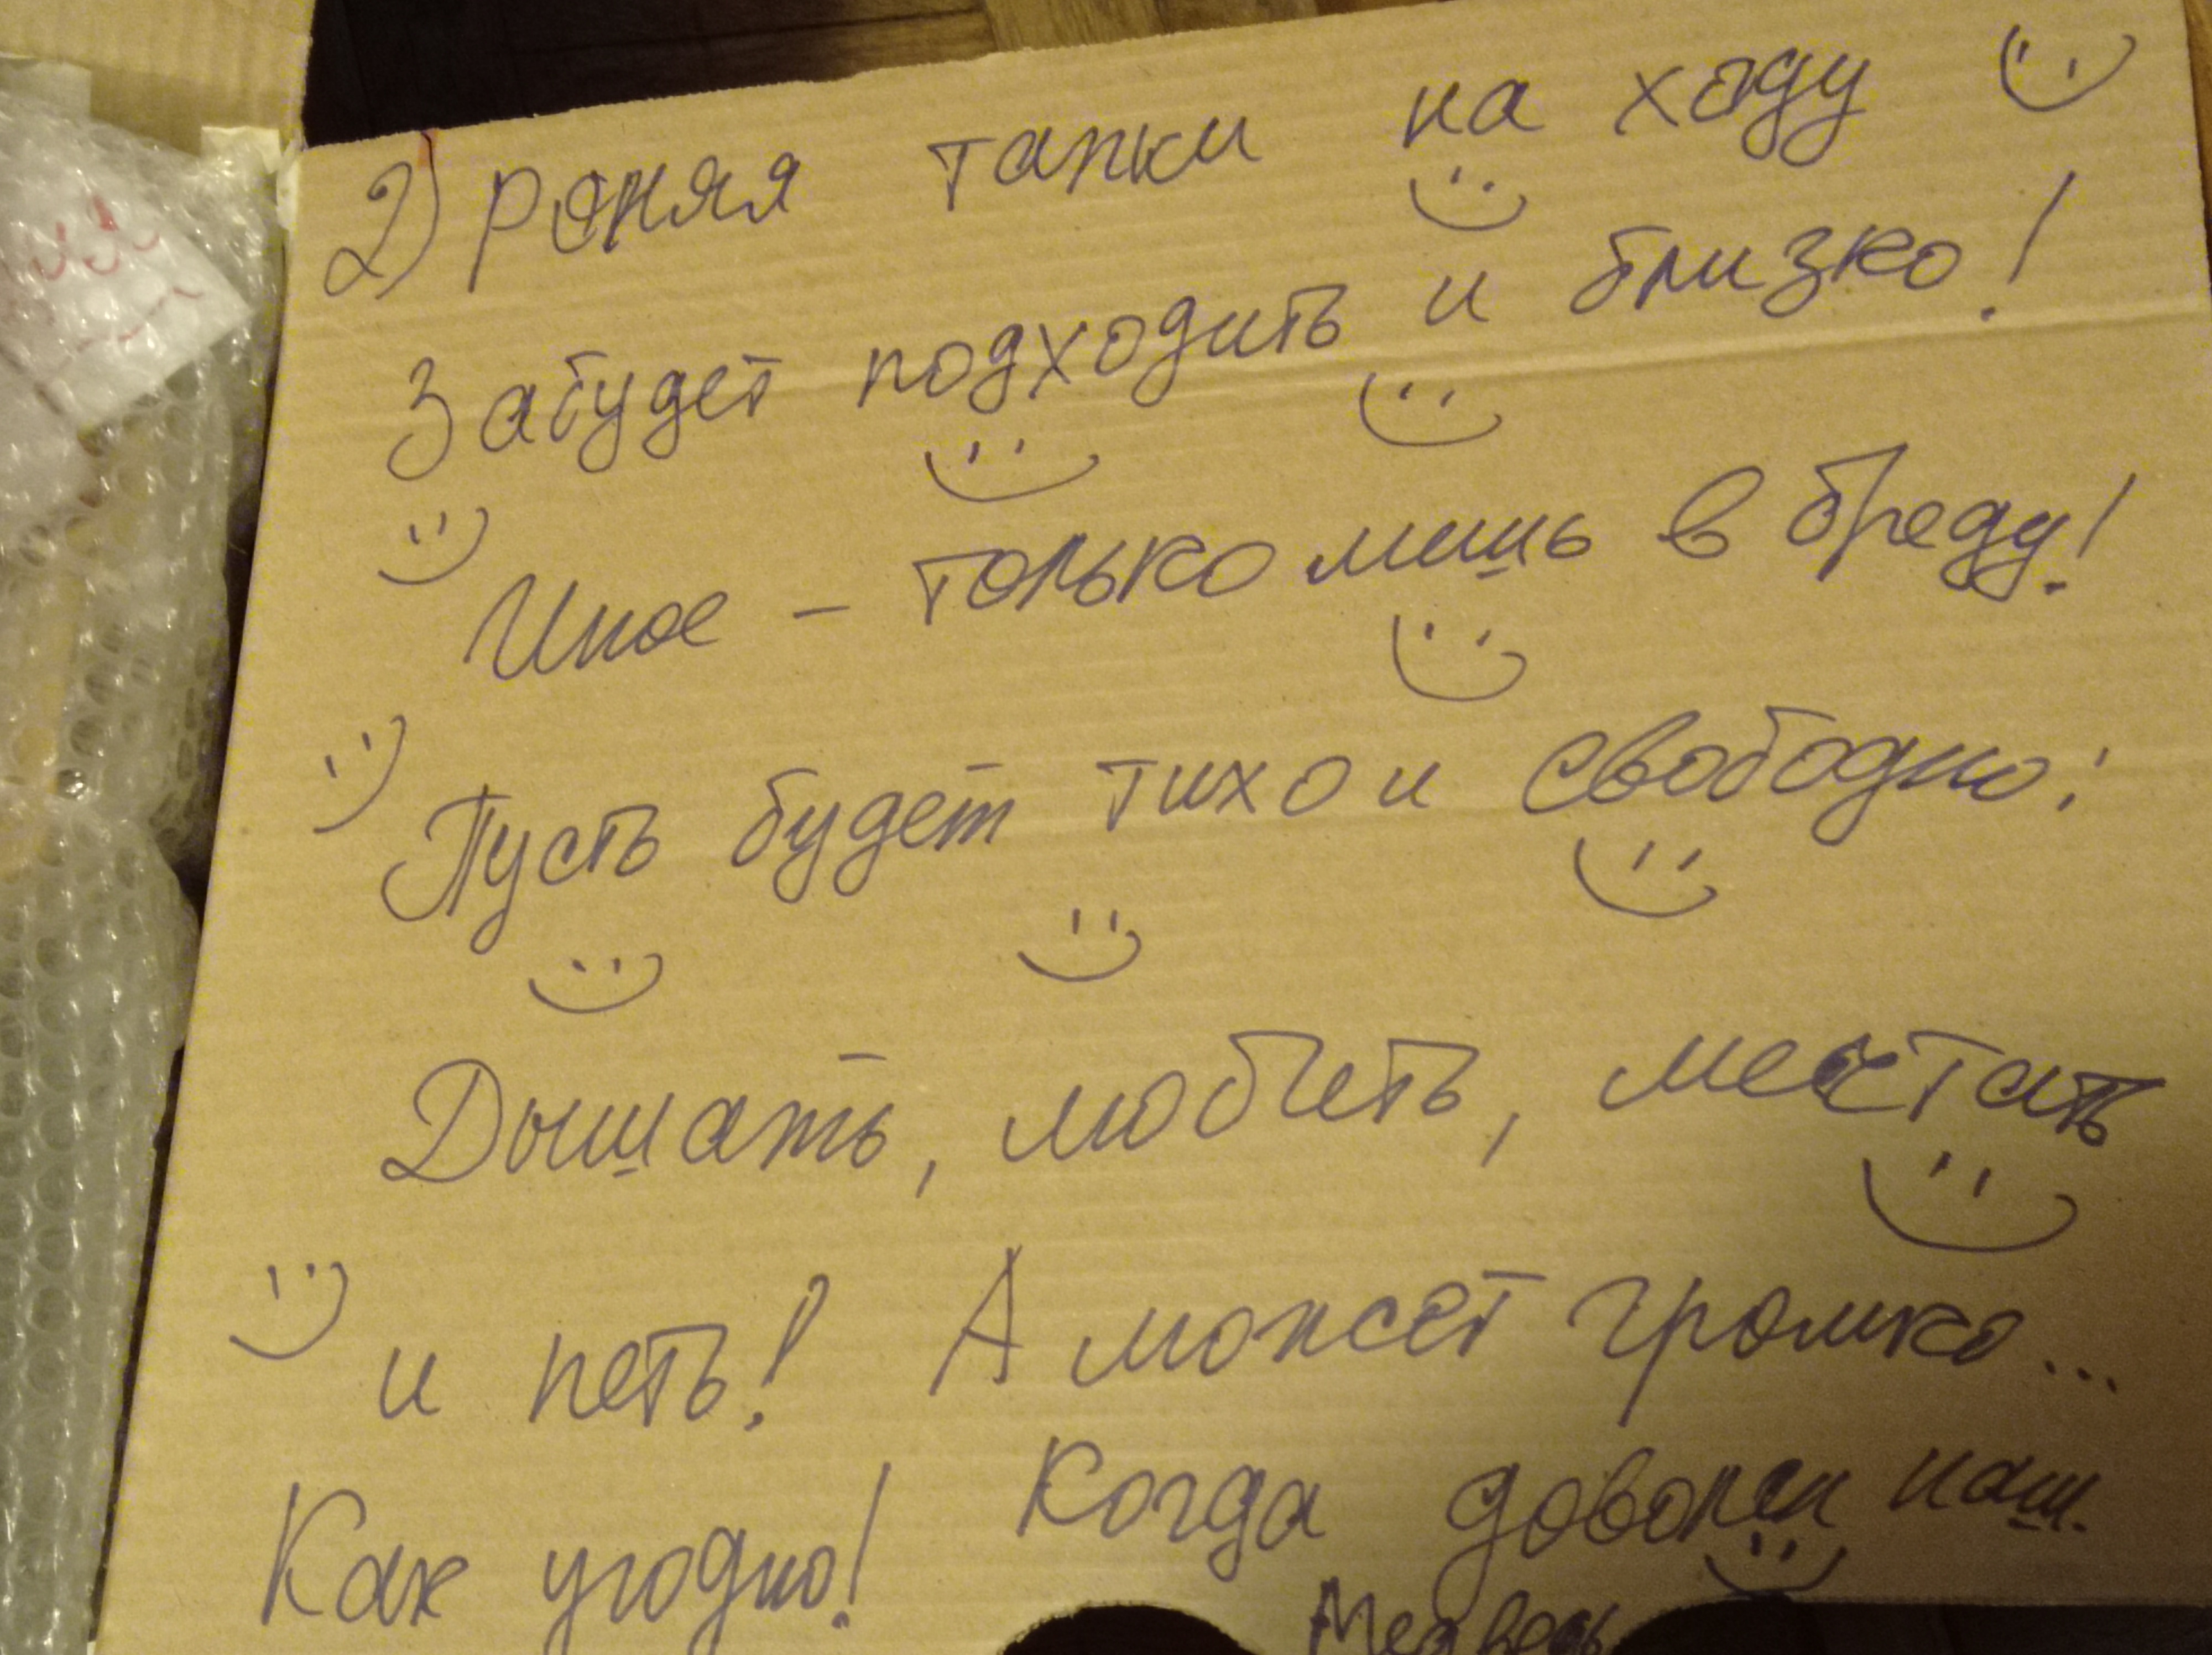 2) Роняя тапки на ходу
Забудет подходить и близко!
Иное - только лишь в бреду!
Пусть будет тихо и свободно:
Дышать, любить, мечтать
и петь! А может громко...
Как угодно! Когда доволен наш
Медведь